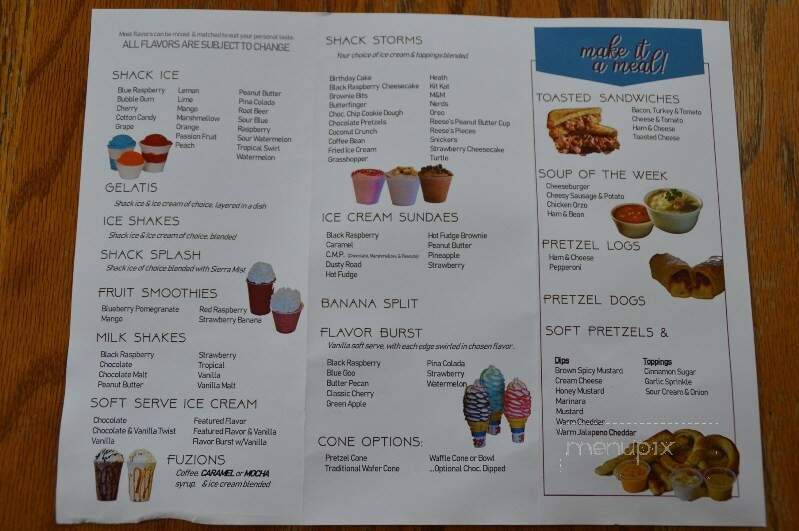 Most flavors can be mixed & matched to suit your personal taste.
ALL FLAVORS ARE SUBJECT TO CHANGE
SHACK ICE
Blue Raspberry
Bubble Gum
Cherry
Cotton Candy
Grape
Lemon
Lime
Mango
Marshmellow
Orange
Passion Fruit
Peach
Peanut Butter
Pina Colada
Root Beer
Sour Blue
Raspberry
Sour Watermelon
Tropical Swirl
Watermelon
GELATIS
Shack ice & ice cream of choice, layered in a dish
ICE SHAKES
Shack ice & ice cream of choice, blended
SHACK SPLASH
Shack ice of choice blended with Sierra Mist
FRUIT SMOOTHIES
Blueberry Pomegranate
Mango
Red Raspberry
Strawberry Banana
MILK SHAKES
Black Raspberry
Chocolate
Chocolate Malt
Peanut Butter
Strawberry
Tropical
Vanilla
Vanilla Malt
SOFT SERVE ICE CREAM
Chocolate
Chocolate & Vanilla Twist
Vanilla
Featured Flavor
Featured Flavor & Vanilla
Flavor Burst w/Vanilla
FUZIONS
Coffee, CARAMEL or MOCHA
syrup, & ice cream blended
SHACK STORMS
Your choice of ice cream & toppings blended.
Birthday Cake
Black Raspberry Cheesecake
Brownie Bits
Butterfinger
Choc. Chip Cookie Dough
Chocolate Pretzels
Coconut Crunch
Coffee Bean
Fried Ice Cream
Grasshopper
Heath
Kit Kat
M&M
Nerds
Oreo
Reese's Peanut Butter Cup
Reese's Pieces
Snickers
Strawberry Cheesecake
Turtle
ICE CREAM SUNDAES
Black Raspberry
Caramel
C.M.P. (Chocolate, Marshmallow, & Peanuts)
Dusty Road
Hot Fudge
Hot Fudge Brownie
Peanut Butter
Pineapple
Strawberry
BANANA SPLIT
FLAVOR BURST
Vanilla soft serve, with each edge swirled in chosen flavor.
Black Raspberry
Blue Goo
Butter Pecan
Classic Cherry
Green Apple
Pina Colada
Strawberry
Watermelon
CONE OPTIONS:
Pretzel Cone
Traditional Wafer Cone
Waffle Cone or Bowl
...Optional Choc. Dipped
make it
a meal!
TOASTED SANDWICHES
Bacon, Turkey & Tomato
Cheese & Tomato
Ham & Cheese
Toasted Cheese
SOUP OF THE WEEK
Cheeseburger
Cheesy Sausage & Potato
Chicken Orzo
Ham & Bean
PRETZEL LOGS
Ham & Cheese
Pepperoni
PRETZEL DOGS
SOFT PRETZELS &
Dips
Brown Spicy Mustard
Cream Cheese
Honey Mustard
Marinara
Mustard
Warm Cheddar
Warm Jalapeno Cheddar
Toppings
Cinnamon Sugar
Garlic Sprinkle
Sour Cream & Onion
menupix